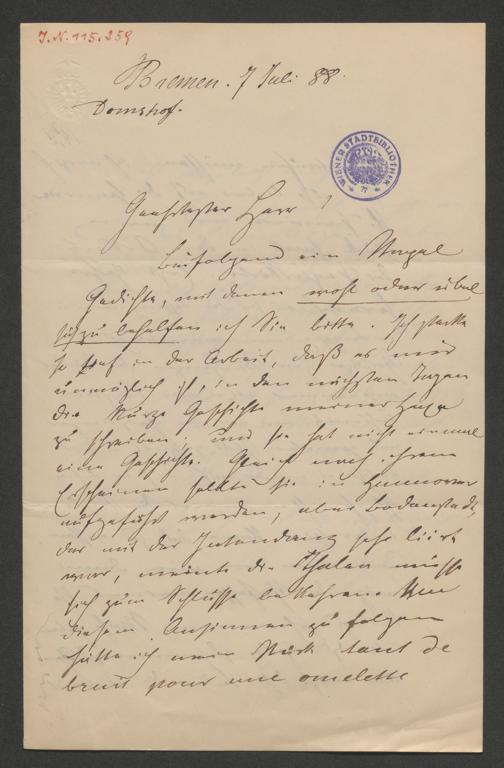 J.N. 115.259
Bremen. 7 Juli 88.
Domshof.
WIENER STADTBIBLIOTHEK
Geehrtester Herr!
Beifolgend ein
Gedichte, mit denen wohl oder übel
sich zu behelfen ich Sie bitte. Ich stecke
so tief in der Arbeit, daß es mir
unmöglich ist, in den nächsten Tagen
die kurze Geschichte meiner Hexe
zu schreiben; und sie hat nicht einmal
eine Geschichte. Gleich nach ihrem
Erscheinen sollte sie in Hannover
aufgeführt werden, aber Bodenstedt,
der mit der Intendanz sehr liirt
war, meinte die Thalea müsse
sich zum Schlusse bekehren. Um
diesem Ansinnen zu folgen
hätte ich mein Stück tant de
bruit pour une omelette